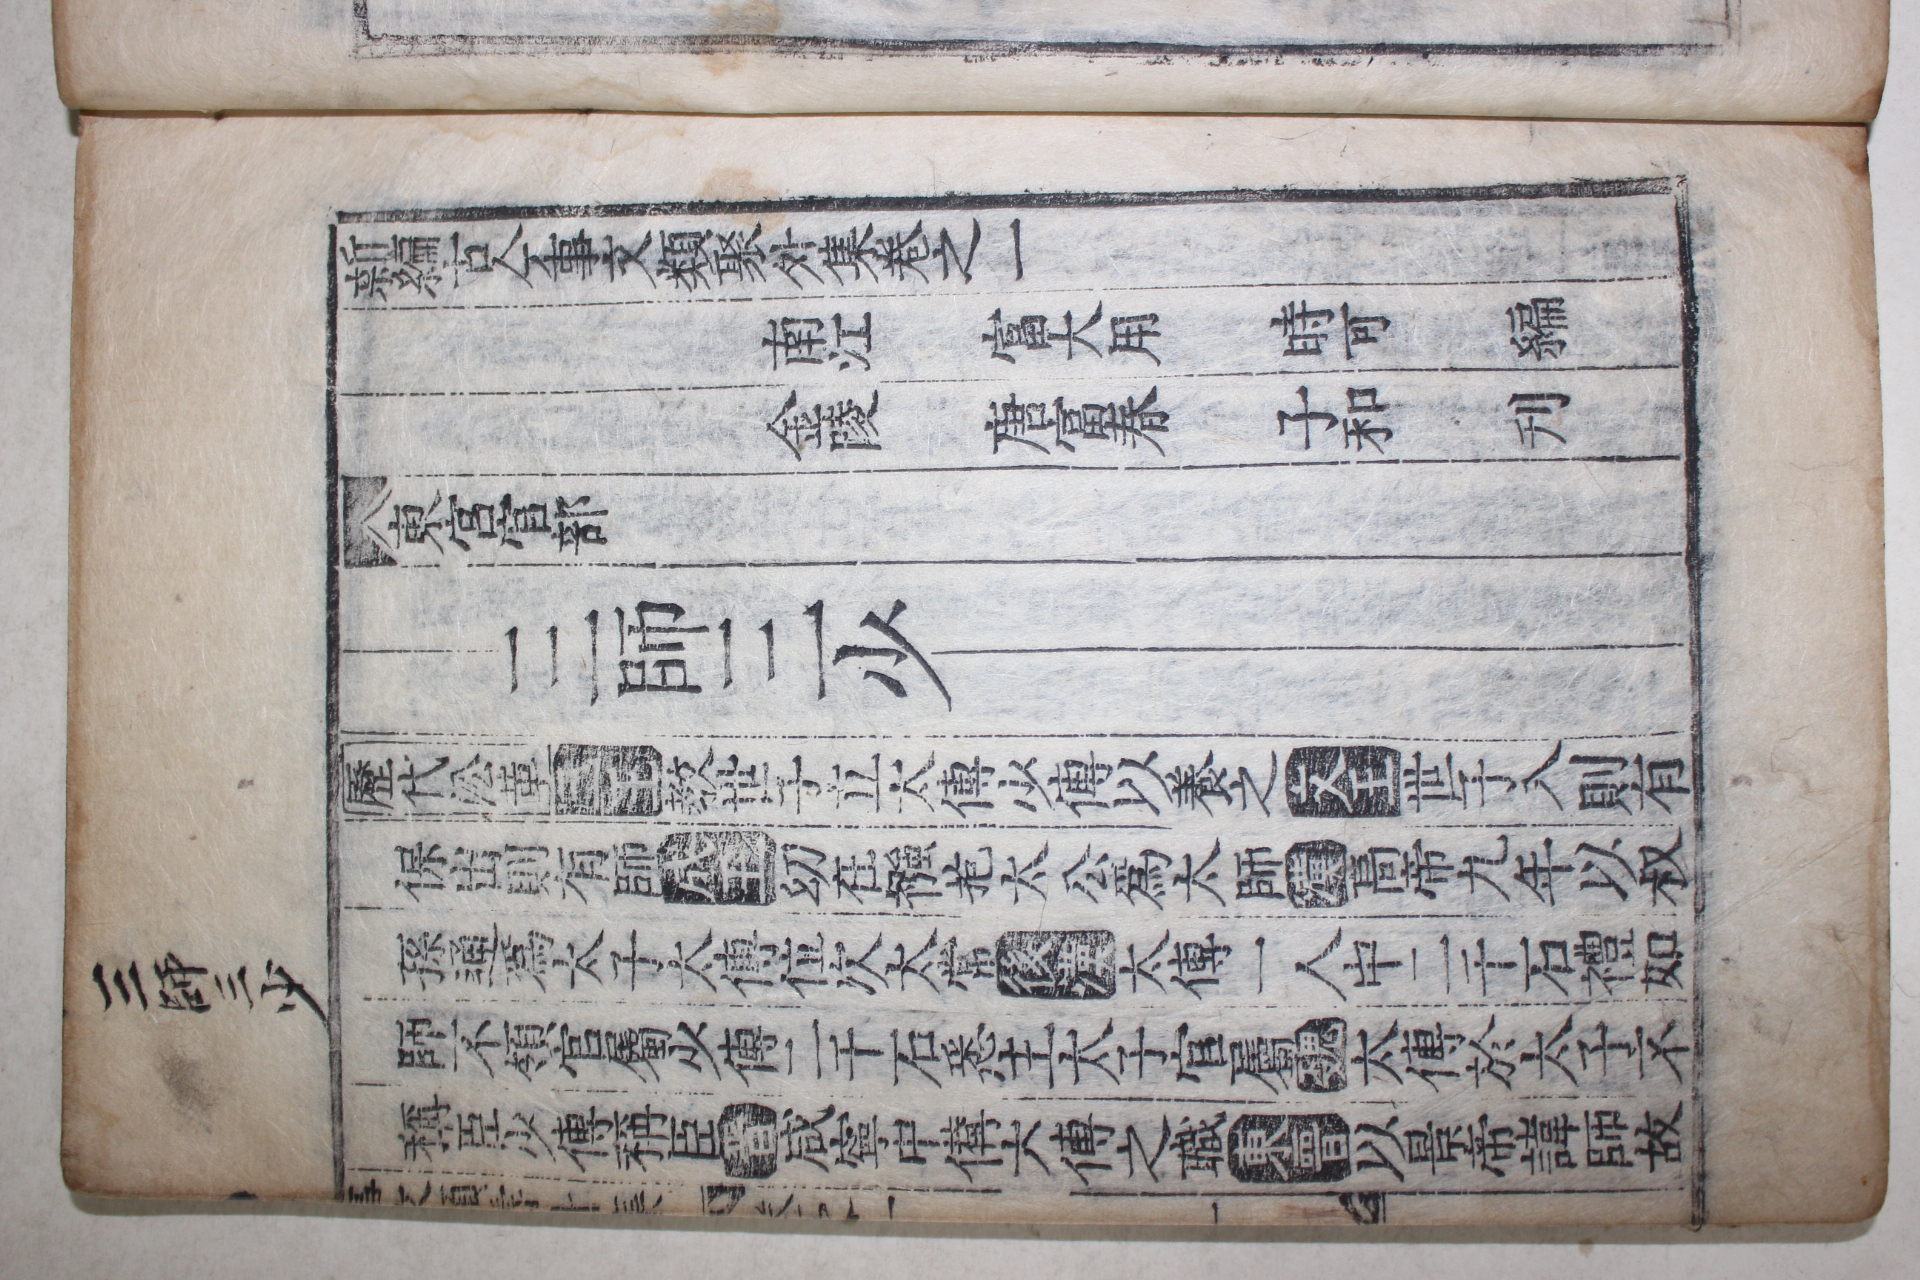 新編古今事文類聚外集卷之一
南江 富大用 時可 編
金陵 唐富春 子和 刊
東宮官部
三師三少
歷代公革 三王 教世子立太傅少傅以養之 入則有
保出則有師 幼在襁褓太公爲太師 漢 高帝九年以叔
孫通爲太子太傅位次太常 後漢 太傅一人中二千石禮如
師不領官屬少傅二千石悉主太子官屬 魏 太傅於太子不
稱臣少傅稱臣 晉 咸寧中備太傅之職 以景帝諱師故
三師三少